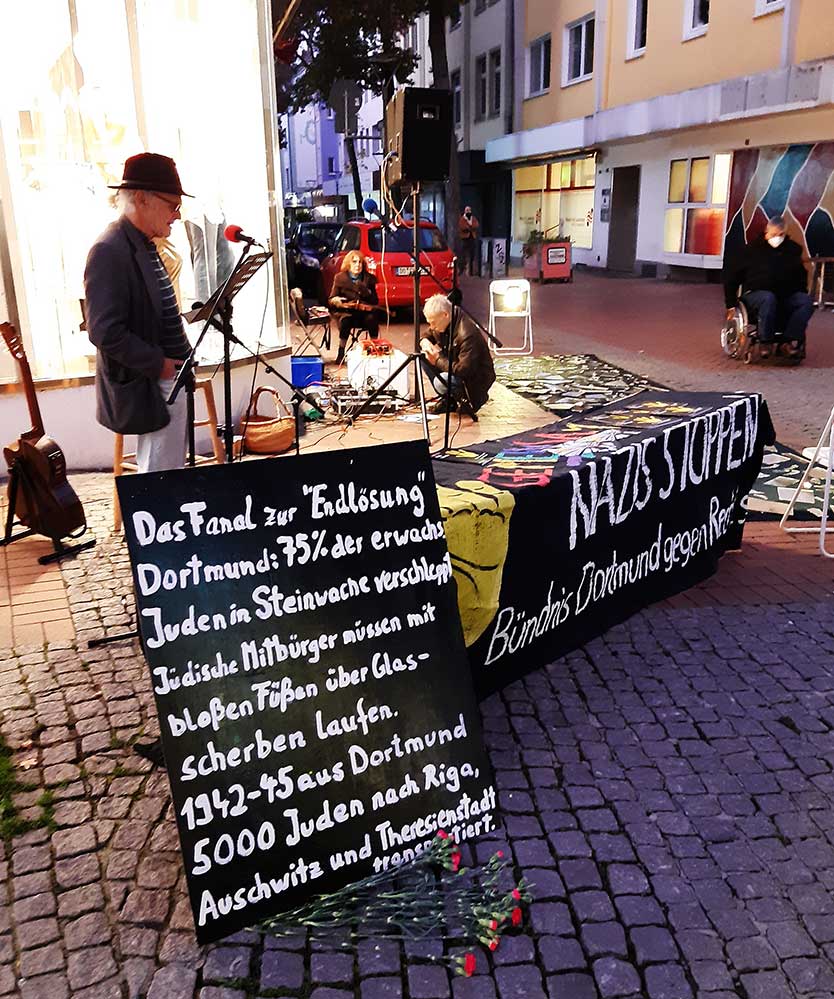 Das Fanal zur "Endlösung"
Dortmund: 75% der erwachs
Juden in Steinwache verschleppt
Jüdische Mitbürger müssen mit
bloßen Füßen über Glas-
scherben laufen.
1942-45 aus Dortmund
5000 Juden nach Riga,
Auschwitz und Theresienstadt
transportiert.
NAZIS STOPPEN
Bündnis Dortmund gegen